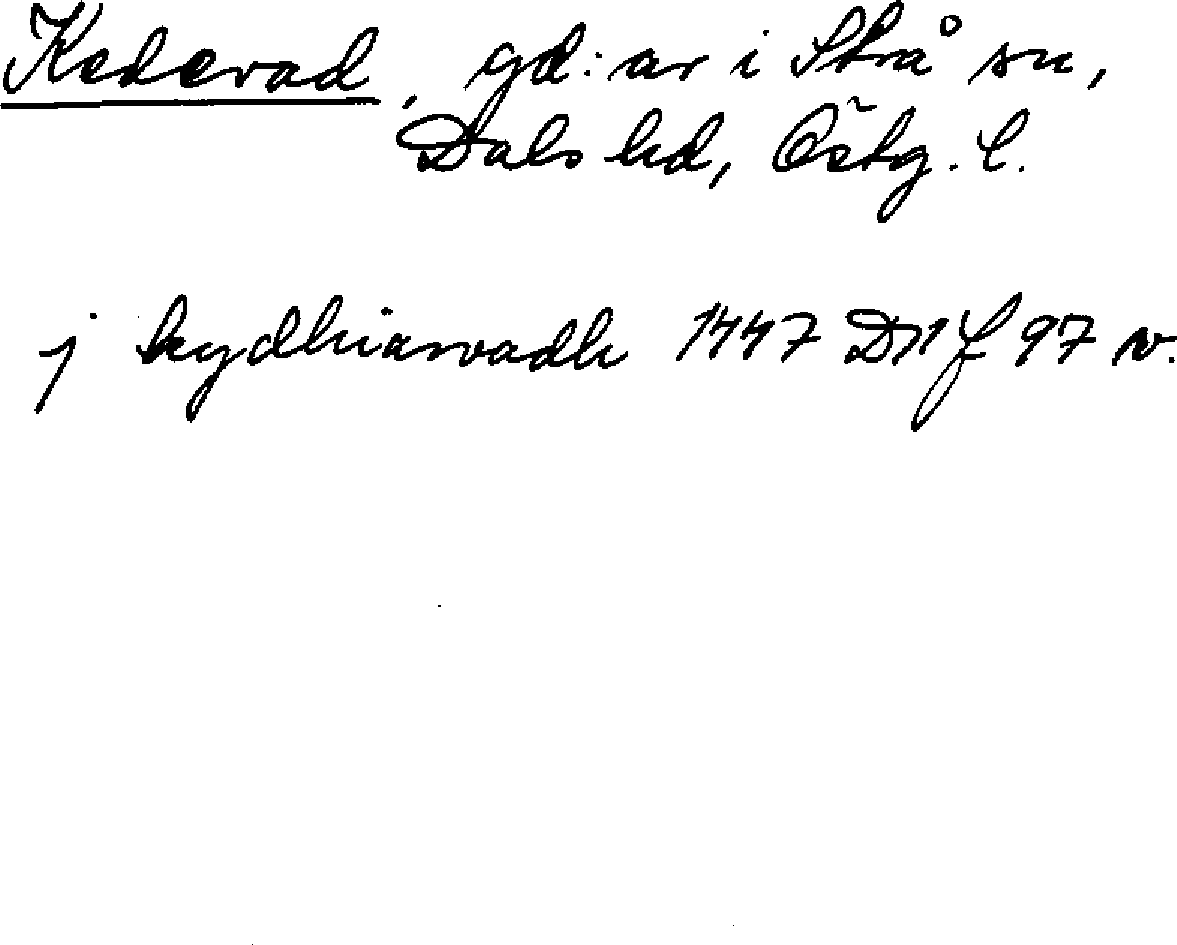 Kedevad, gd:ar i Strå sn,
Dals hd, Östg. l.
j kydhiavadh 1447 D11 f 97 v.